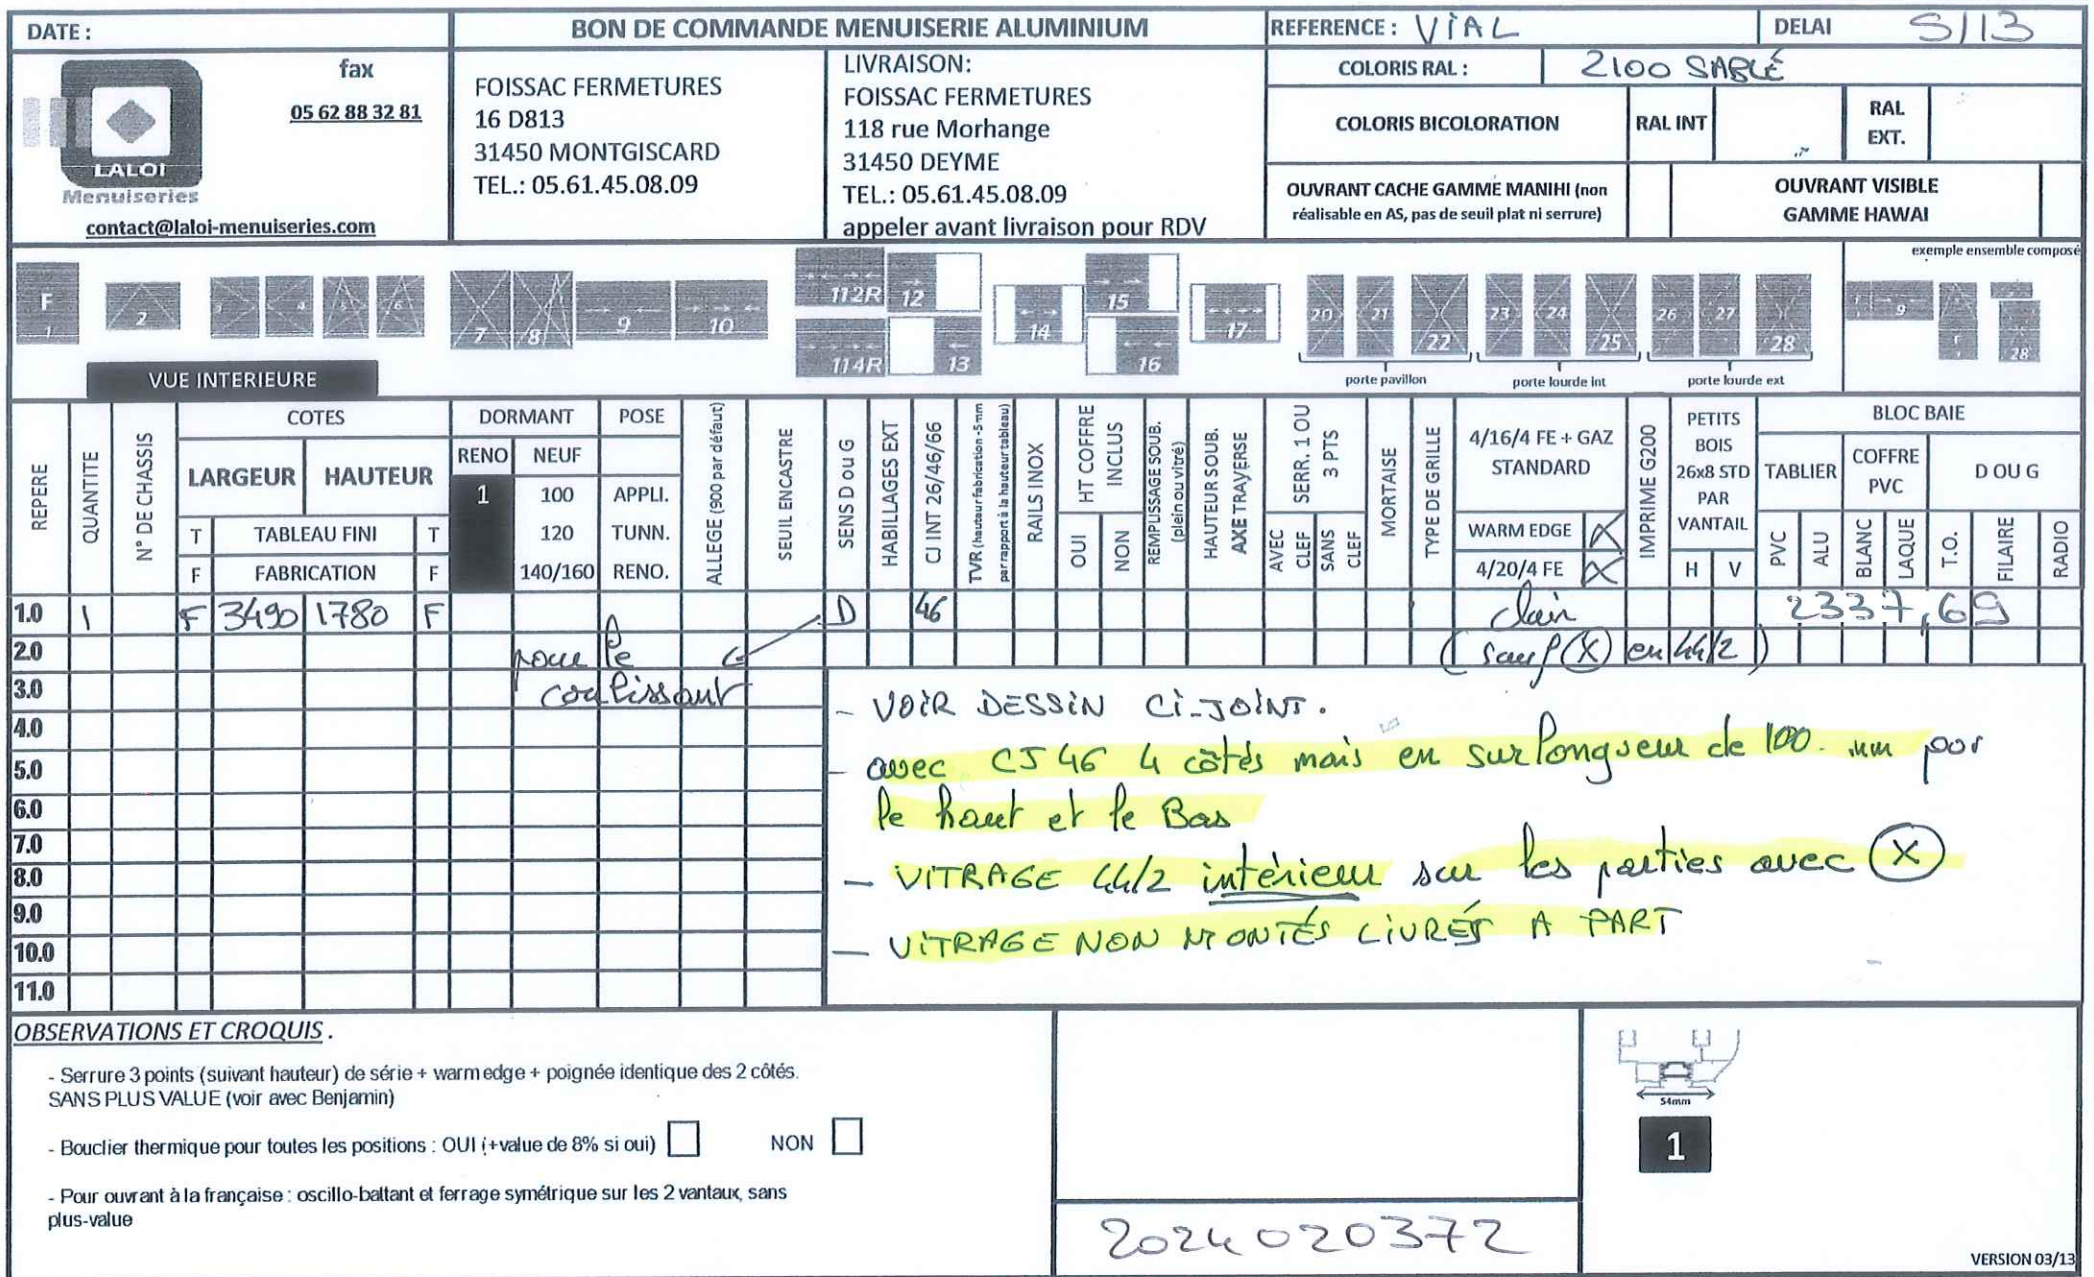 DATE :
BON DE COMMANDE MENUISERIE ALUMINIUM
REFERENCE : VIAL
DELAI S/13
fax
05 62 88 32 81
LALOI
Menuiseries
contact@laloi-menuiseries.com
FOISSAC FERMETURES
16 D813
31450 MONTGISCARD
TEL.: 05.61.45.08.09
LIVRAISON:
FOISSAC FERMETURES
118 rue Morhange
31450 DEYME
TEL.: 05.61.45.08.09
appeler avant livraison pour RDV
COLORIS RAL : 2100 SABLÉ
COLORIS BICOLORATION
RAL INT
RAL
EXT.
OUVRANT CACHE GAMME MANIHI (non
réalisable en AS, pas de seuil plat ni serrure)
OUVRANT VISIBLE
GAMME HAWAI
exemple ensemble composé
F
1
2
3
4
5
6
7
8
9
10
112R
114R
12
13
14
15
16
17
20
21
22
23
24
25
26
27
28
9
F
28
porte pavillon
porte lourde int
porte lourde ext
VUE INTERIEURE
REPERE
QUANTITE
N° DE CHASSIS
COTES
LARGEUR
HAUTEUR
T TABLEAU FINI T
F FABRICATION F
DORMANT
RENO
NEUF
1
100
120
140/160
POSE
APPLI.
TUNN.
RENO.
ALLEGE (900 par défaut)
SEUIL ENCASTRE
SENS D ou G
HABILLAGES EXT
CJ INT 26/46/66
TVR (hauteur fabrication -5 mm
par rapport à la hauteur tableau)
RAILS INOX
HT COFFRE
INCLUS
OUI
NON
REMPLISSAGE SOUB.
(plein ou vitré)
HAUTEUR SOUB.
AXE TRAVERSE
SERR. 1 OU
3 PTS
AVEC
CLEF
SANS
CLEF
MORTAISE
TYPE DE GRILLE
4/16/4 FE + GAZ
STANDARD
WARM EDGE X
4/20/4 FE X
IMPRIME G200
PETITS
BOIS
26x8 STD
PAR
VANTAIL
H
V
BLOC BAIE
TABLIER
COFFRE
PVC
D OU G
PVC
ALU
BLANC
LAQUE
T.O.
FILAIRE
RADIO
1.0 1 F 3490 1780 F D 46 clair 2337,69
2.0 pour le (sauf (X) en 44/2)
3.0 coulissant
4.0
5.0
6.0
7.0
8.0
9.0
10.0
11.0
- VOIR DESSIN Ci-JOINT.
- avec CJ 46 4 côtés mais en surlongueur de 100 mm pour
le haut et le Bas
- VITRAGE 44/2 intérieur sur les parties avec (X)
- VITRAGE NON MONTÉS LIVRÉS A PART
OBSERVATIONS ET CROQUIS .
- Serrure 3 points (suivant hauteur) de série + warm edge + poignée identique des 2 côtés.
SANS PLUS VALUE (voir avec Benjamin)
- Bouclier thermique pour toutes les positions : OUI (+value de 8% si oui)
NON
- Pour ouvrant à la française : oscillo-battant et ferrage symétrique sur les 2 vantaux, sans
plus-value
2024020372
54mm
1
VERSION 03/13